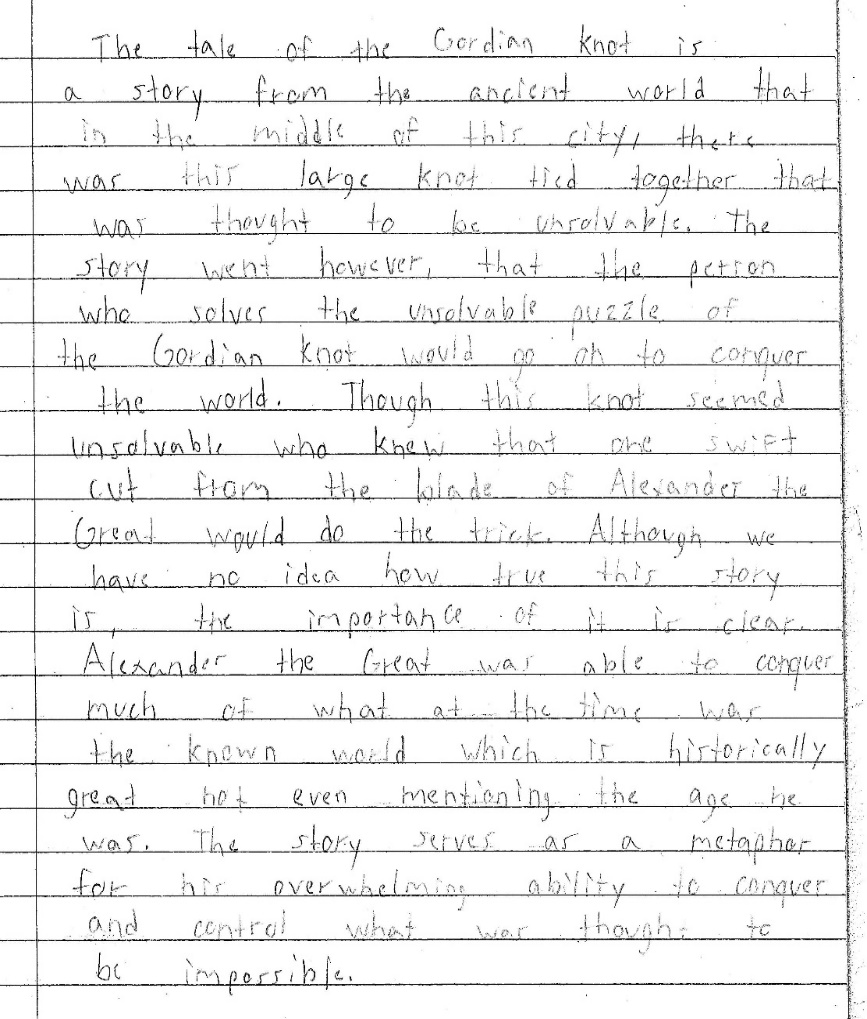 The tale of the Gordian knot is
a story from the ancient world that
in the middle of this city, there
was this large knot tied together that
was thought to be unsolvable. The
story went however, that the person
who solves the unsolvable puzzle of
the Gordian Knot would go on to conquer
the world. Though this knot seemed
unsolvable who knew that one swift
cut from the blade of Alexander the
Great would do the trick. Although we
have no idea how true this story
is, the importance of it is clear.
Alexander the Great was able to conquer
much of what at the time was
the known world which is historically
great not even mentioning the age he
was. The story serves as a metaphor
for his overwhelming ability to conquer
and control what was thought to
be impossible.